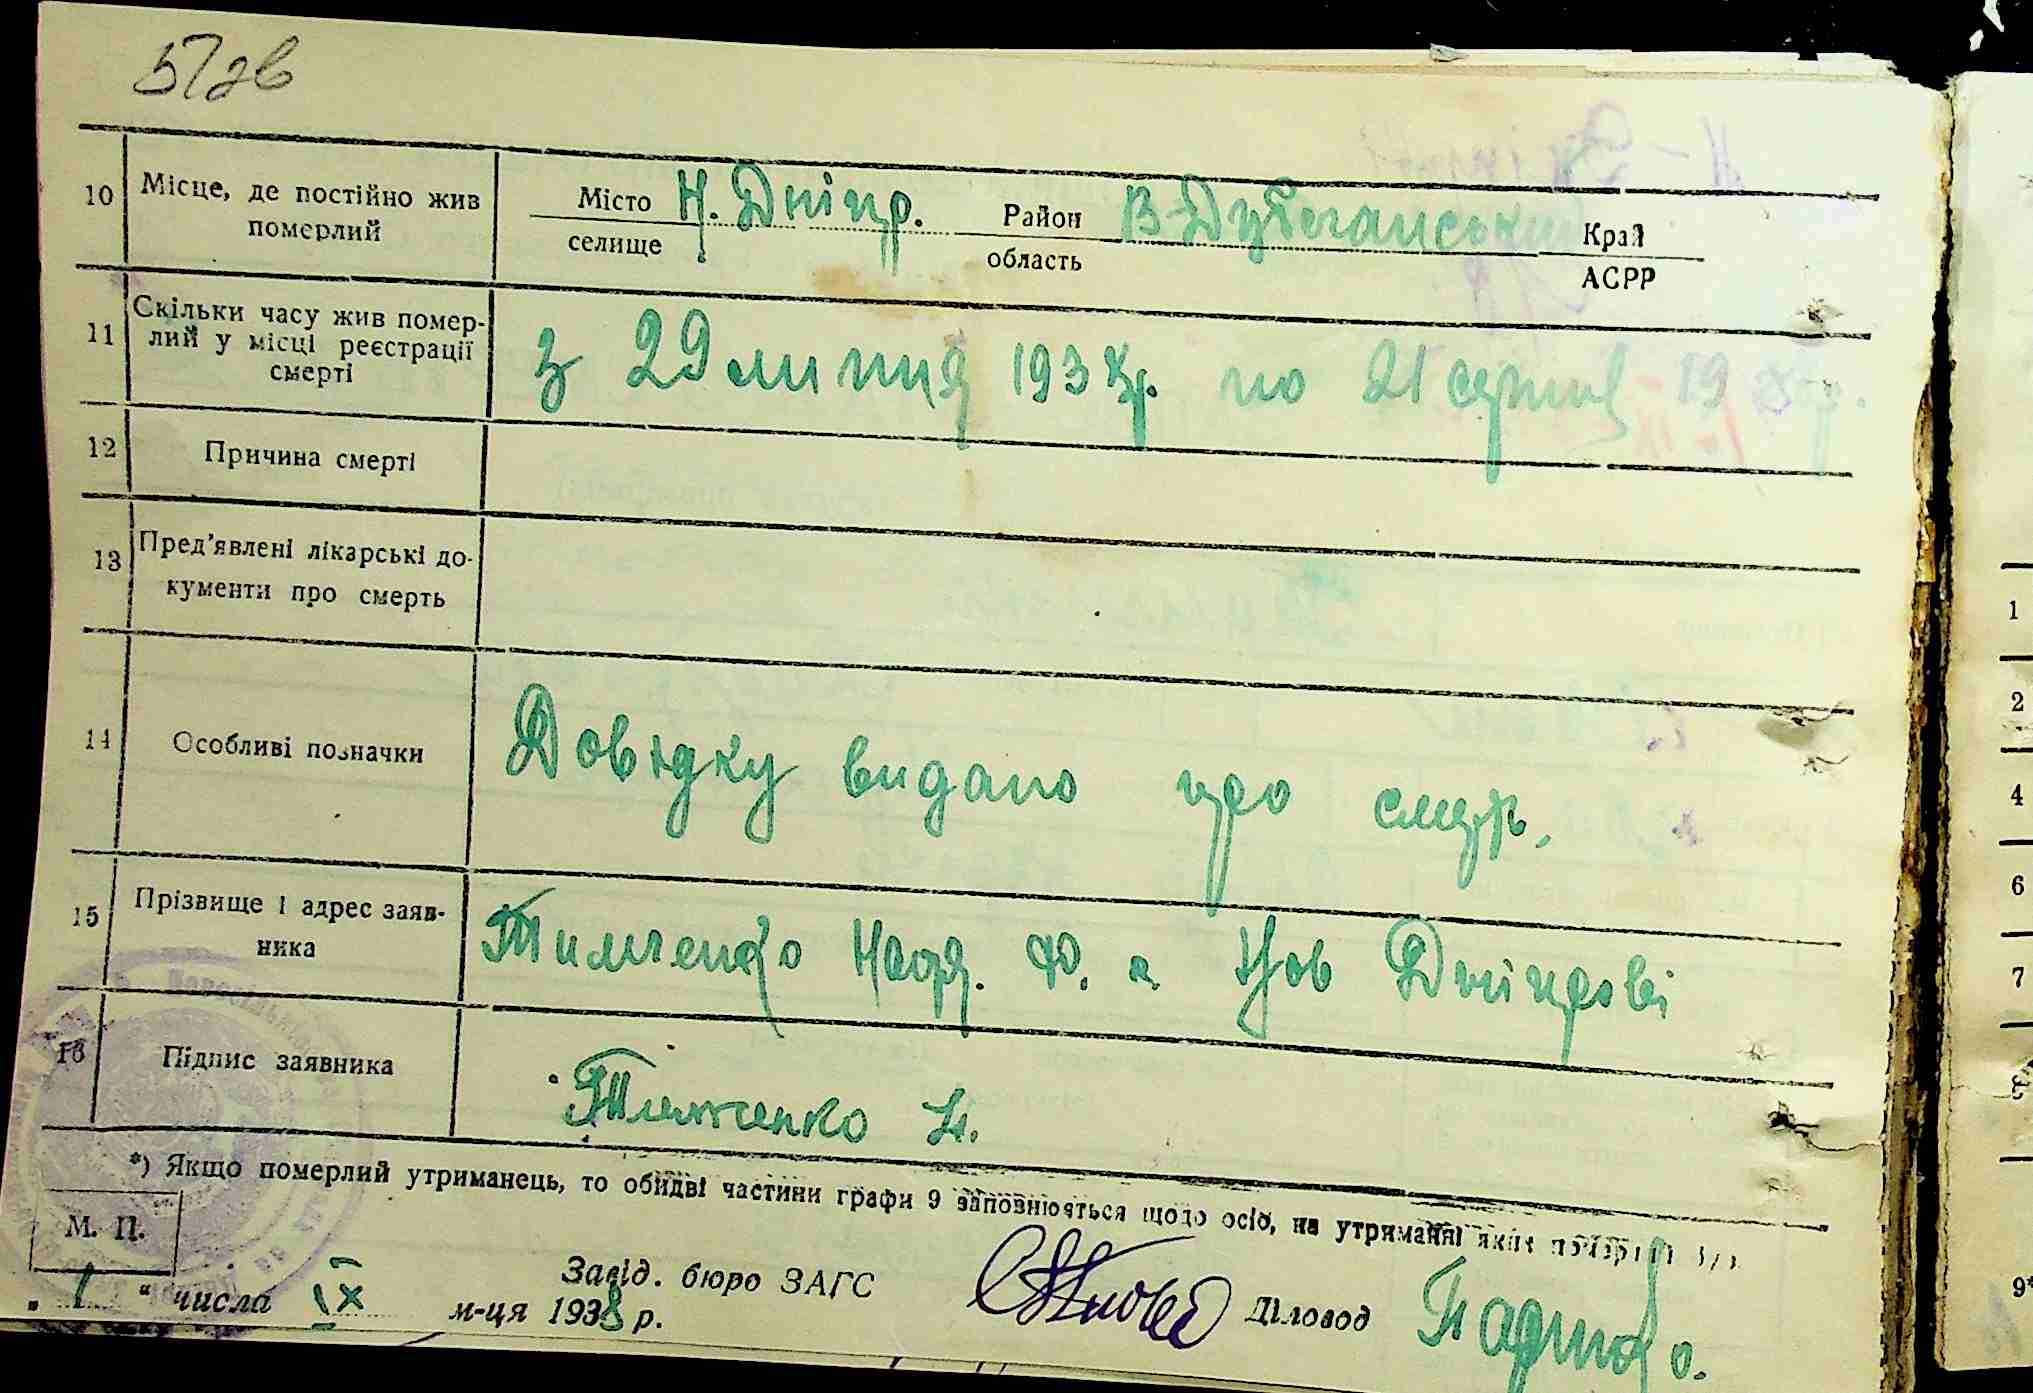 57зв
10 Місце, де постійно жив померлий
Місто Н. Дніпр. Район В-Дубечанський Край
селище область АСРР
11 Скільки часу жив помер-
лий у місці реєстрації
смерті
з 29 липня 1938р. по 21 серпня 1938р.
12 Причина смерті
13 Пред'явлені лікарські до-
кументи про смерть
14 Особливі позначки
Довідку видано про смерть.
15 Прізвище і адрес заяв-
ника
Тимченко Надя. Ф. с. Нов Дніпрові
16 Підпис заявника
Тимченко Н.
*) Якщо померлий утриманець, то обидві частини графи 9 заповнюються щодо осіб, на утриманні яких
М. П.
"1" числа IX м-ця 1938 р.
Завід. бюро ЗАГС
Діловод
1
2
4
6
7
8
9*